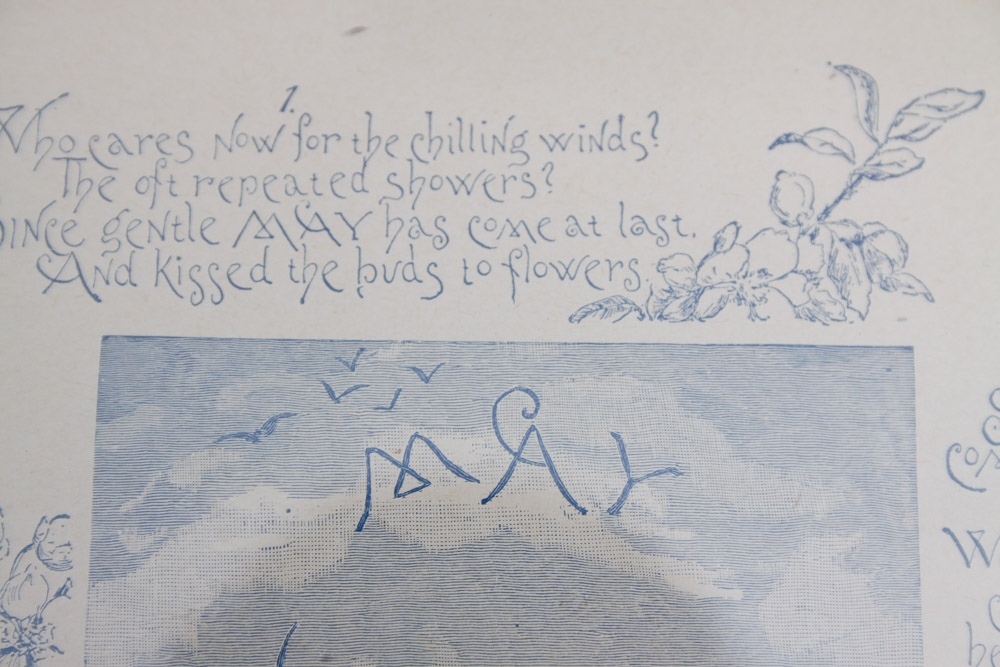 1.
Who cares now for the chilling winds?
The oft repeated showers?
Since gentle MAY has come at last,
And kissed the buds to flowers.
MAY